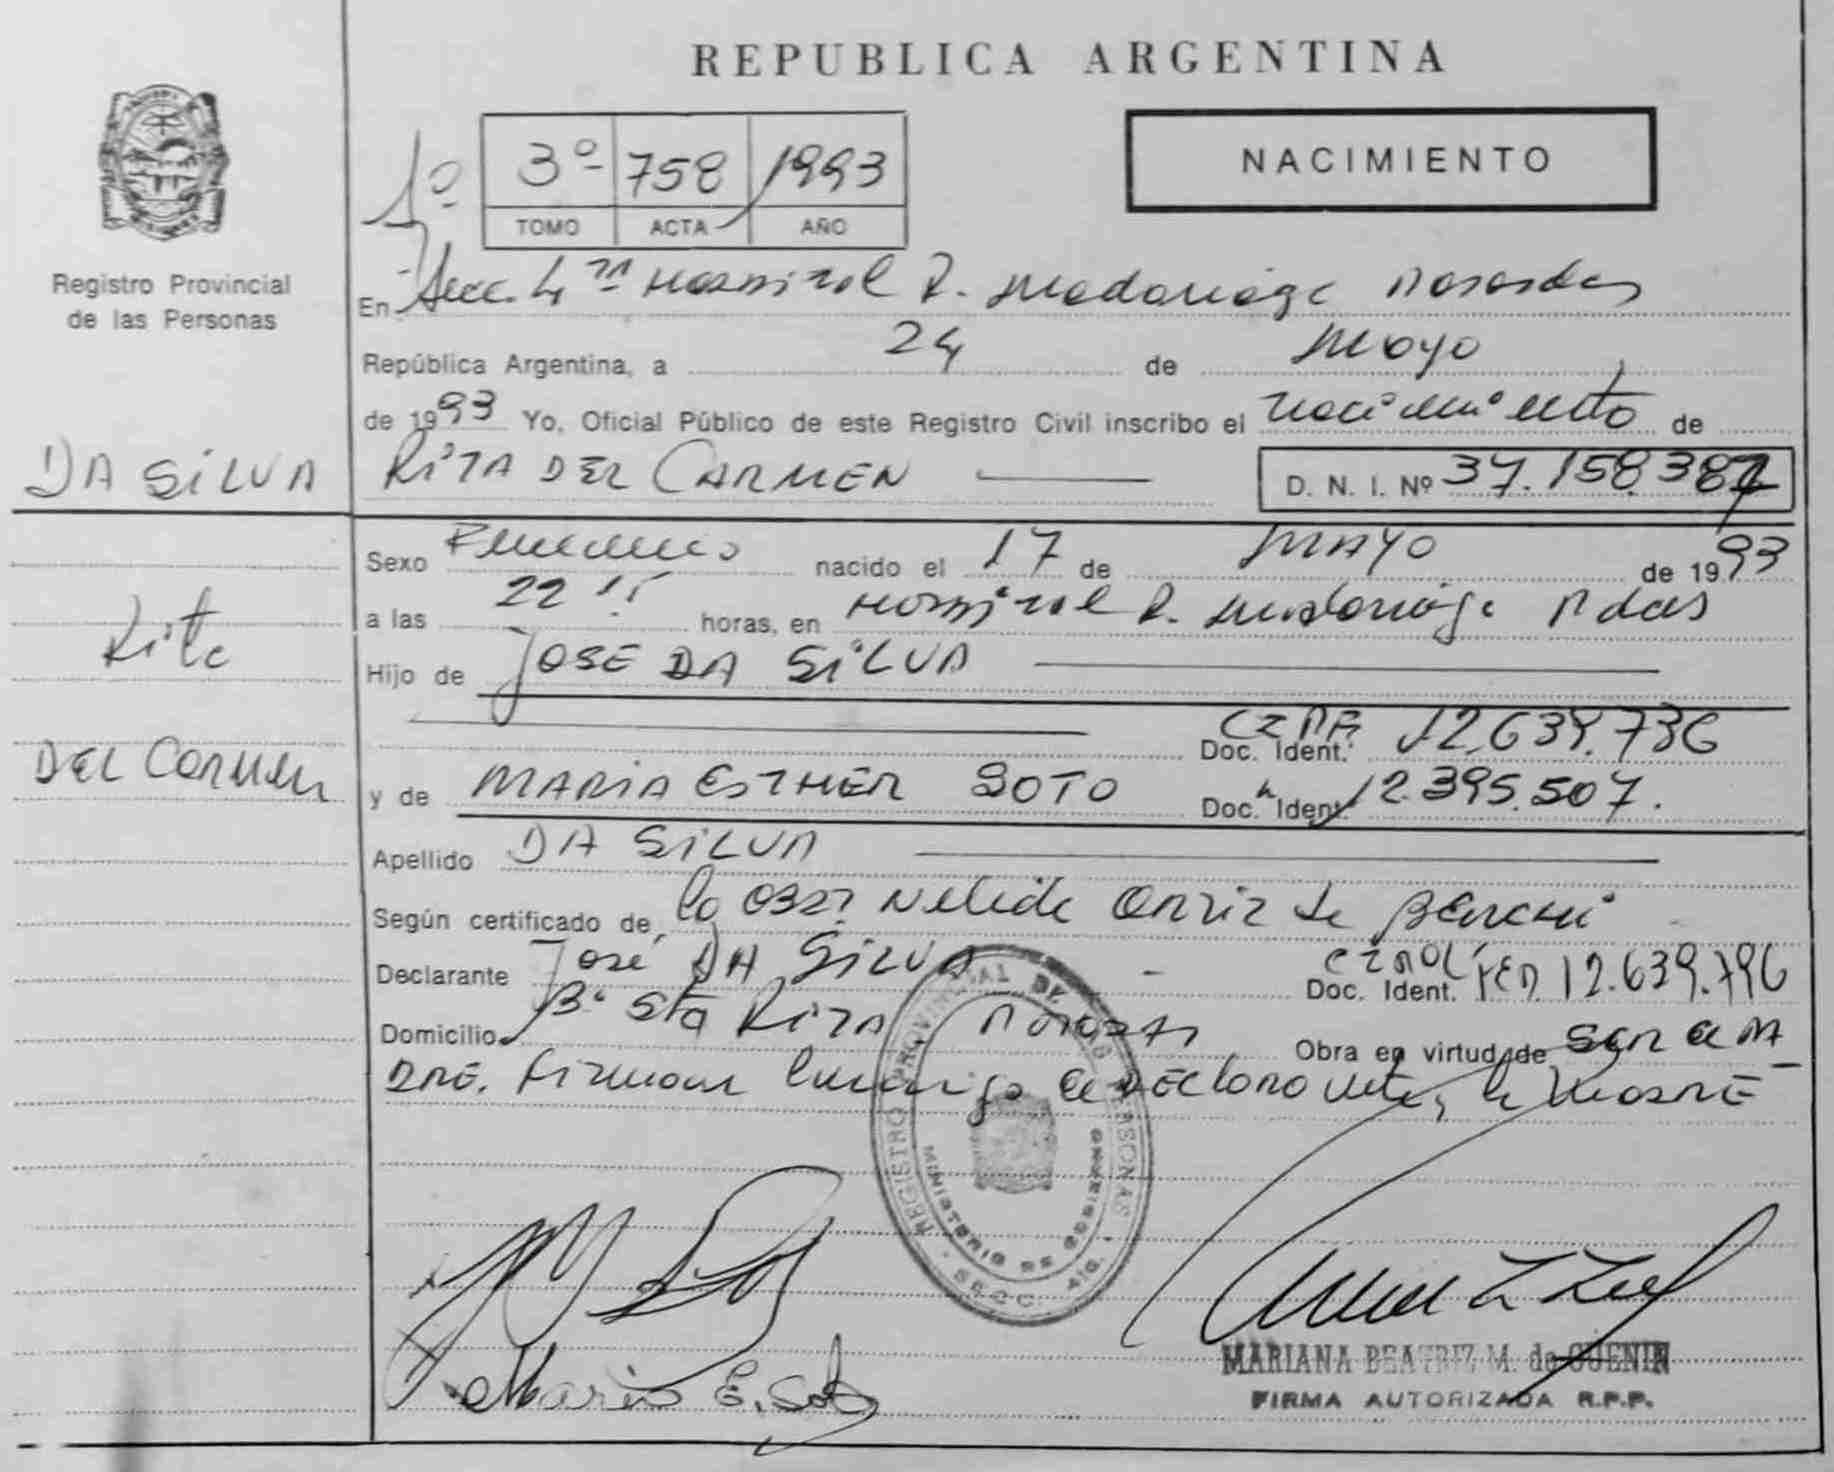 REPUBLICA ARGENTINA
NACIMIENTO
1º 3º 758 1993
TOMO ACTA AÑO
Registro Provincial
de las Personas
En Secc. 4ta Hospital R. Madariaga Posadas
República Argentina, a 24 de Mayo
de 1993 Yo, Oficial Público de este Registro Civil inscribo el nacimiento de
DA SILVA RITA DEL CARMEN D. N. I. Nº 37.158.387
Sexo Femenino nacido el 17 de MAYO de 1993
a las 22 horas, en Hospital R. Madariaga Pdas
Rita
Hijo de JOSE DA SILVA
Doc. Ident. 12.639.736
DEL Carmen
y de MARIA ESTHER SOTO Doc. Ident. 12.395.507.
Apellido DA SILVA
Según certificado de la Obst Nelida Ortiz de
Declarante José DA SILVA Doc. Ident. 12.639.796
Domicilio Bº Sta Rita Posadas Obra en virtud de Ser el PA
DRE. Firman conmigo el DEClarante y la MADRE
REGISTRO PROVINCIAL DE LAS PERSONAS
MINISTERIO DE GOBIERNO
Maria E. Soto
MARIANA BEATRIZ M. de GUENIN
FIRMA AUTORIZADA R.P.P.